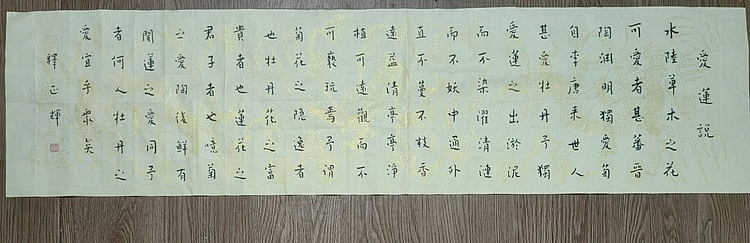 愛蓮説
水陸草木之花
可愛者甚蕃晉
陶渊明獨愛菊
自李唐来世人
甚愛牡丹予獨
愛蓮之出淤泥
而不染濯清漣
而不妖中通外
直不蔓不枝香
遠益清亭亭淨
植可遠觀而不
可褻玩焉予謂
菊花之隐逸者
也牡丹花之富
貴者也蓮花之
君子者也噫菊
之愛陶後鮮有
聞蓮之愛同予
者何人牡丹之
愛宜乎眾矣
釋正輝